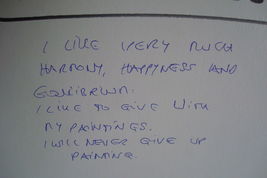 I LIKE VERY MUCH
HARMONY, HAPPYNESS AND
EQUILIBRIUM.
I LIKE TO GIVE WITH
MY PAINTINGS.
I WILL NEVER GIVE UP
PAINTING.